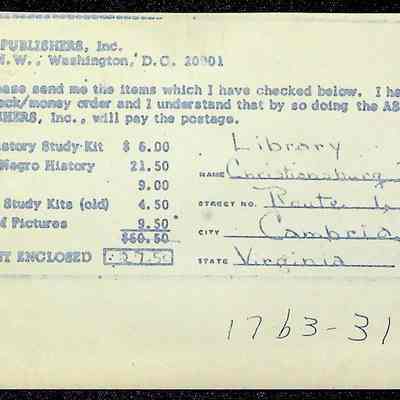 PUBLISHERS, Inc.
N.W., Washington, D.C. 20001
ase send me the items which I have checked below. I he
eck/money order and I understand that by so doing the AS
SHERS, Inc., will pay the postage.
istory Study Kit $ 6.00
Negro History 21.50
9.00
Study Kits (old) 4.50
of Pictures 9.50
$60.50
NT ENCLOSED 27.50
Library
NAME Christiansburg
STREET NO. Route 1
CITY Cambria
STATE Virginia
1763-31